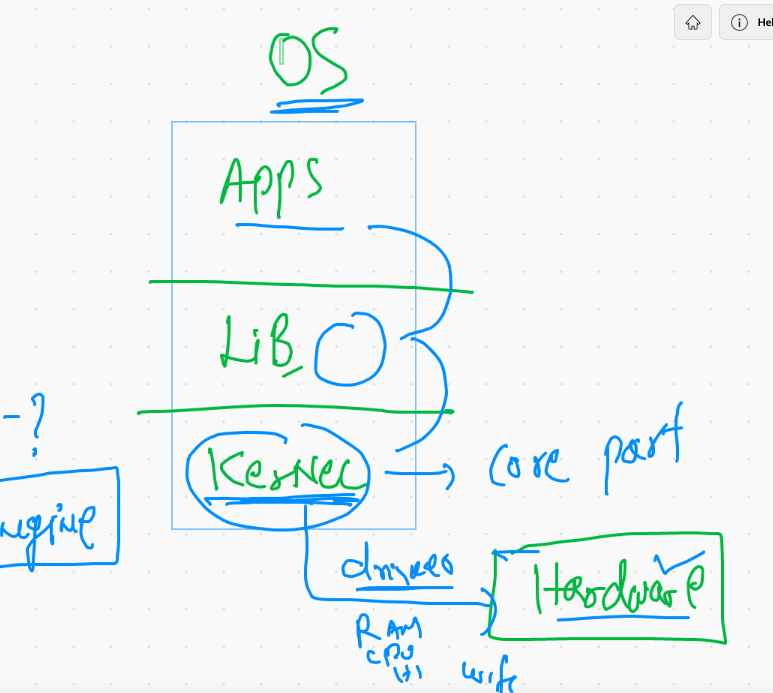 Hel
OS
Apps
LiB
-?
Kernel
core part
drivers
Hardware
RAM
CPU
wife